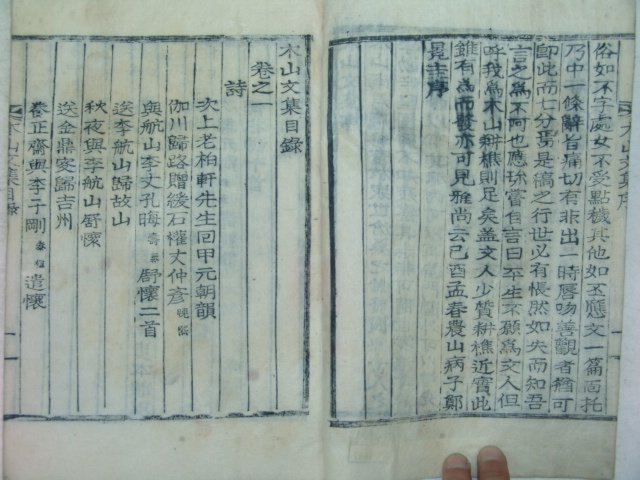 俗如不字處女不受點穢其他如丕應文一篇面托
乃中一條辭旨痛切有非出一時唇吻善觀者猶可
卽此而七分焉是稿之行世必有悵然如失而知吾
言之爲不阿也應珎嘗自言曰平生不願爲文人但
呼我爲木山耕樵則足矣盖文人少贊耕樵近實此
雖有爲而發亦可見雅尚云己酉孟春農山病子鄭
晃主序
木山文集序
木山文集目錄
卷之一
詩
次上老柏軒先生回甲元朝韻
伽川歸路贈緩石權丈仲彦
與航山李丈孔晦壽 舒懷二首
送李航山歸故山
秋夜與李航山舒懷
送金鼎安歸吉州
登正齋與李子剛 遣懷
木山文集目錄
一